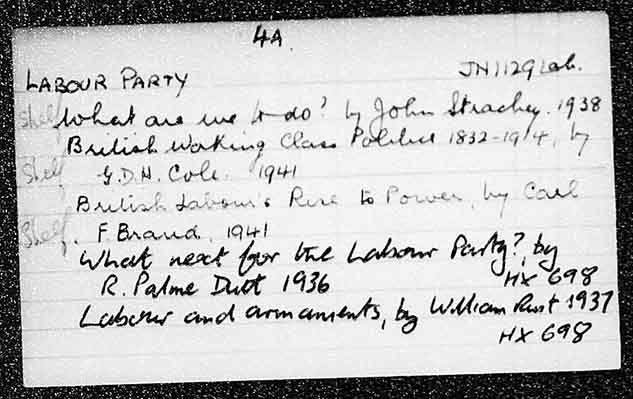 4A
LABOUR PARTY JN1129 Lab.
Shelf What are we to do? by John Strachey. 1938
British Working Class Politics 1832-1914, by
Shelf G.D.H. Cole. 1941
British Labour's Rise to Power, by Carl
Shelf F. Brand, 1941
What next for the Labour Party?, by
R. Palme Dutt 1936 HX 698
Labour and armaments, by William Rust 1937
HX 698